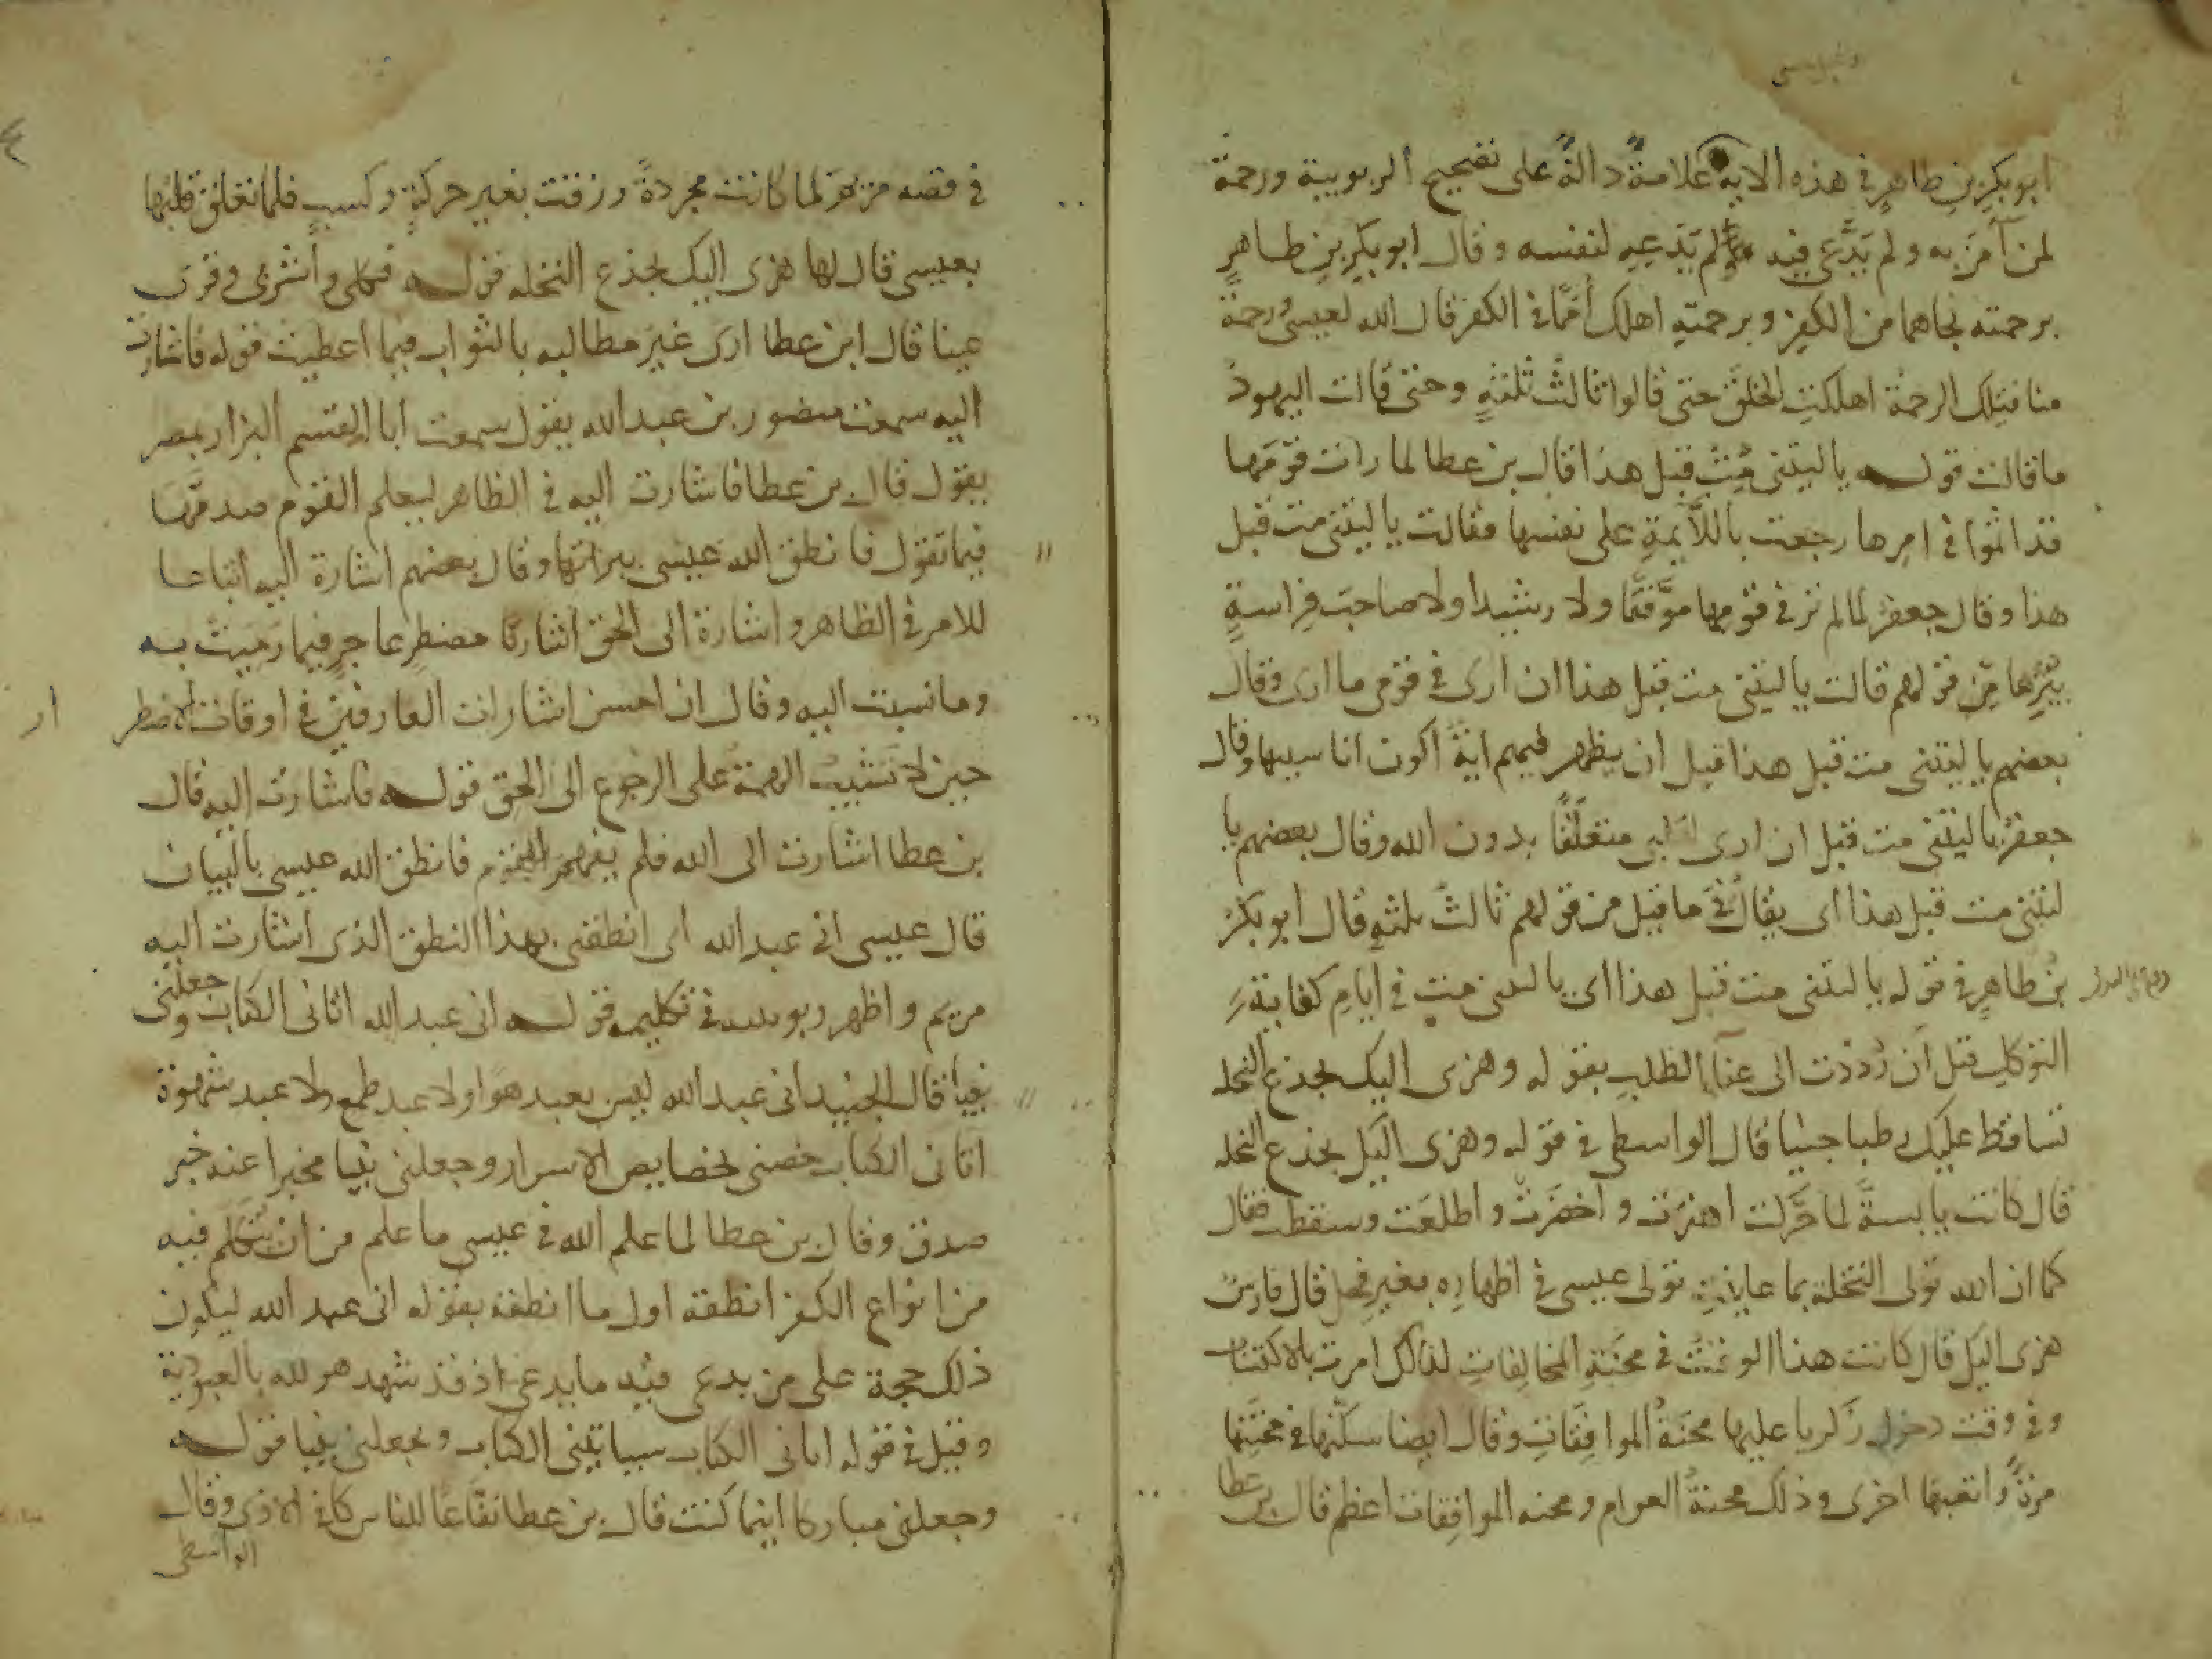 ابو بكر بن طاهر في هذه الاية علامة دالة على تصحيح الربوبية ورحمة
لمن آمن به ولم يدع فيه ما لم يدعيه لنفسه وقال ابو بكر بن طاهر
برحمته نجاهما من الكفر وبرحمته اهلك أممًا في الكفر قال الله لعيسى ورحمة
منا فتلك الرحمة اهلكت الخلق حتى قالوا ثالث ثلثة وحتى قالت اليهود
ما قالت قوله يا ليتني مت قبل هذا قال بن عطا لما رات قومها
قد اثموا في امرها رجعت باللائمة على نفسها فقالت يا ليتني مت قبل
هذا وقال جعفر لما لم تر في قومها موفقا ولا رشيدا ولا صاحب فراسة
يبرها من قولهم قالت يا ليتني مت قبل هذا ان ارى في قومي ما ارى وقال
بعضهم يا ليتني مت قبل هذا قبل ان يظهر فيهم اية اكون انا سببها وقال
جعفر يا ليتني مت قبل ان ارى لقلبي متعلقا بدون الله وقال بعضهم يا
ليتني مت قبل هذا اى يقال في ما قيل من قولهم ثالث ثلثة قال ابو بكر
بن طاهر في قوله يا ليتني مت قبل هذا اى يا ليتني مت في ايام كفاية
التوكل قبل ان رددت الى عنآ الطلب بقوله وهزى اليك بجذع النخله
تساقط عليك رطبا جنيا قال الواسطى في قوله وهزى اليك بجذع النخله
قال كانت يابسة لما حركت اهتزت و اخضرت و اطلعت وسقطت فقال
كما ان الله تولى النخلة بما عاينت تولى عيسى في اظهاره بغير فحل قال فارس
هزى اليك قال كانت هذا الوقت في محنة المخالفات لذلك امرت بالاكتساب
وفي وقت دخول زكريا عليها محنة الموافقات وقال ايضا سكنها في محنتها
مرة واتعبها اخرى وذلك محنة العوام ومحنه الموافقات اعظم قال بن عطا
في قصه مريم لما كانت مجردة رزقت بغير حركة وكسب فلما تعلق قلبها
بعيسى قال لها هزى اليك بجذع النخله قوله فكلى واشربى وقرى
عينا قال ابن عطا ارى غير مطالبه بالثواب فيما اعطيت قوله فاشارت
اليه سمعت منصور بن عبد الله يقول سمعت ابا القسم البزار بمصر
يقول قال بن عطا فاشارت اليه في الظاهر ليعلم القوم صدقها
فيما تقول فانطق الله عيسى ببراتها وقال بعضهم اشارة اليه اتباعا
للامر في الظاهر و اشارة الى الحق اشارة مضطر عاجر فيما رميت به
وما نسبت اليه وقال ان احسن اشارات العارفين في اوقات الاضطر
ار
حين لا تشيب الهمة على الرجوع الى الحق قوله فاشارت اليه قال
بن عطا اشارت الى الله فلم يفهم القوم فانطق الله عيسى بالبيان
قال عيسى انى عبد الله اى انطقنى بهذا النطق الذى اشارت اليه
مريم و اظهر ربوبيته في تكليمه قوله انى عبد الله اتانى الكتاب وجعلني
نبيا قال الجنيد انى عبد الله ليس بعبد هوا ولا عبد طمع ولا عبد شهوة
اتانى الكتاب خصنى بخصايص الاسرار وجعلنى نبيا مخبرا عنه خبر
صدق وقال بن عطا لما علم الله في عيسى ما علم من ان يتكلم فيه
من انواع الكفر انطقه اول ما انطقه بقوله انى عبد الله ليكون
ذلك حجة على من يدعى فيه ما يدعى اذ قد شهد هو لله بالعبودية
وقيل في قوله اتانى الكتاب سياتينى الكتاب ويجعلنى نبيا قوله
وجعلنى مباركا اينما كنت قال بن عطا نفاعا للناس كاف الاذى وقال
الواسطى